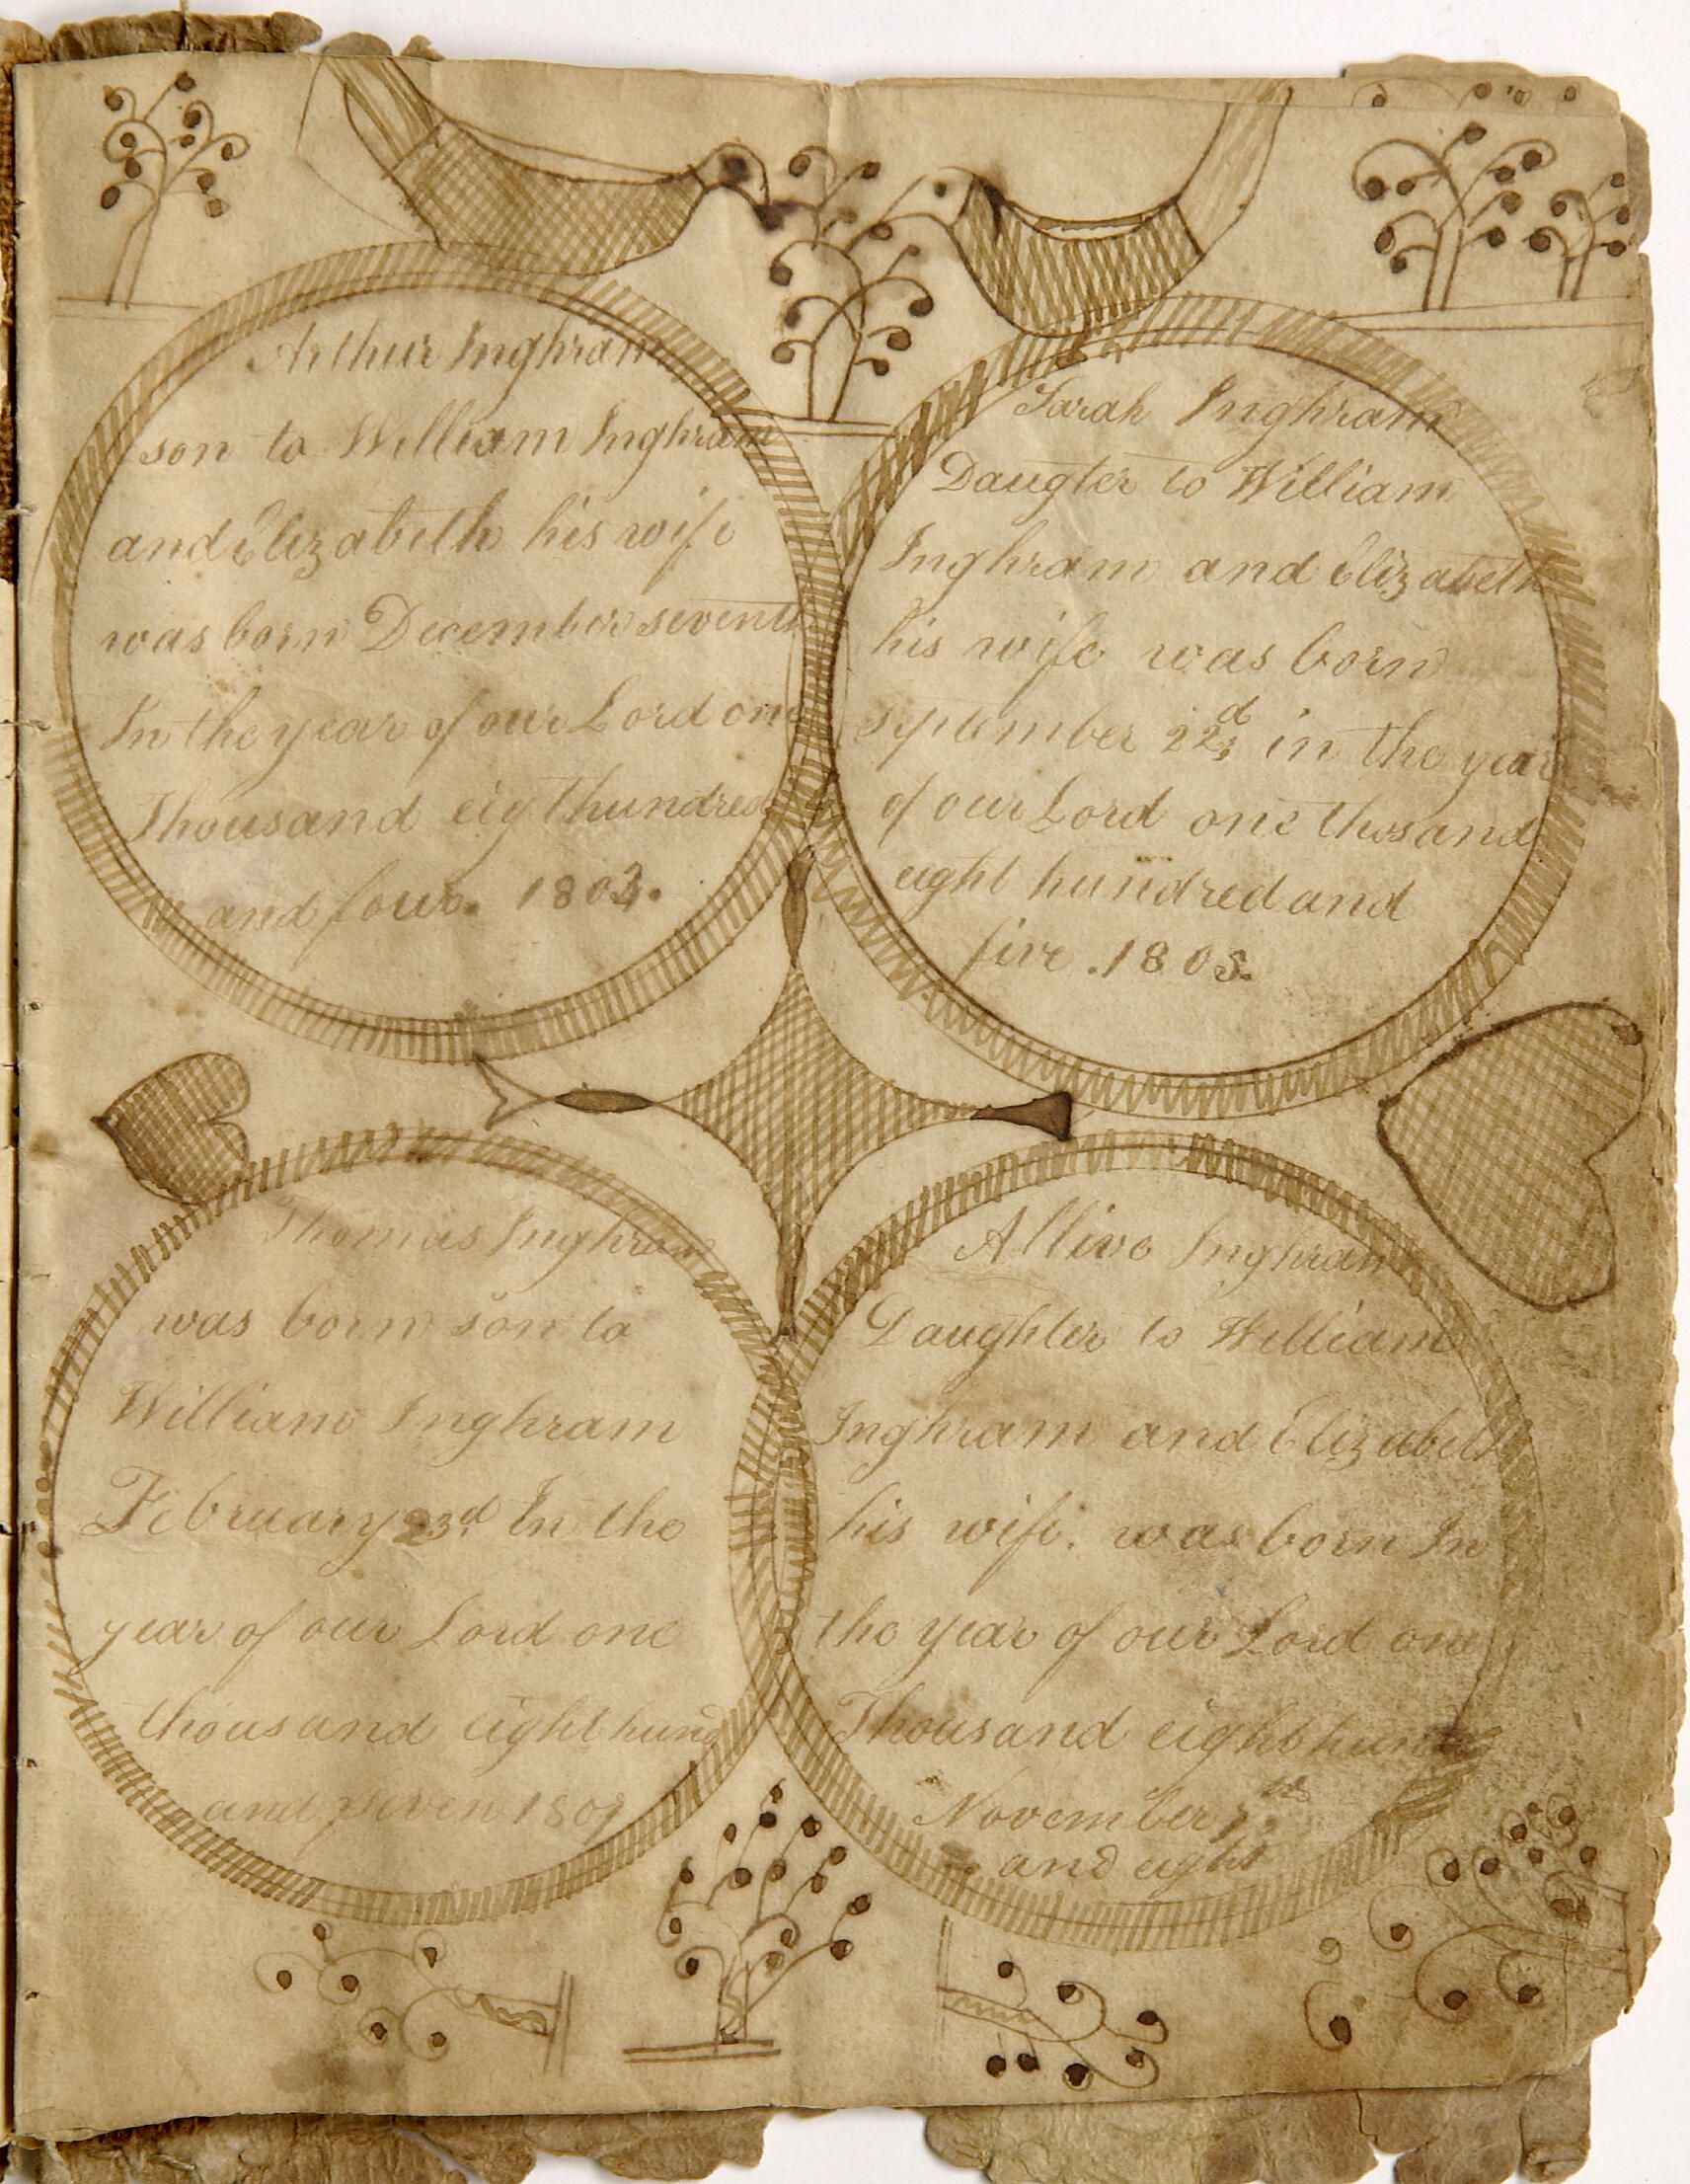 Arthur Inghram
son to William Inghram
and Elizabeth his wife
was born December seventh
In the year of our Lord one
Thousand eigthundred
and four. 1803.
Sarah Inghram
Daugter to William
Inghram and Elizabeth
his wife was born
September 22d in the year
of our Lord one thosand
eight hundred and
five .1805.
Thomas Inghram
was born son to
William Inghram
February 23d In the
year of our Lord one
thousand eight hund
and seven 1807
Allivo Inghram
Daughter to William
Inghram and Elizabeth
his wife. was born In
the year of our Lord one
Thousand eight hund
November
and eight